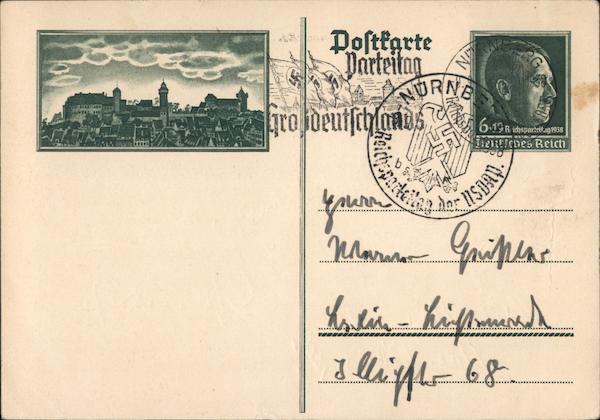 Postkarte
Parteitag
Großdeutschlands
NÜRNBERG
Reichsparteitag der NSDAP.
6+19 Reichsparteitag 1938
Deutsches Reich
Herrn
Berlin - Lichtenrade
68.